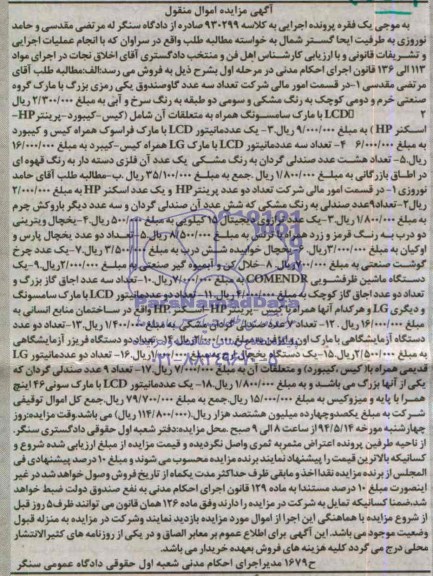 آگهی مزایده اموال منقول
به موجب یک فقره پرونده اجرایی به کلاسه ۹۳۰۲۹۹ صادره از دادگاه سنگر له مرتضی مقدسی و حامد
نوروزی به طرفیت ایحا گستر شمال به خواسته مطالبه طلب واقع در سراوان که با انجام عملیات اجرایی
و تشریفات قانونی و با ارزیابی کارشناس اهل فن و منتخب دادگستری آقای اخلاق نجات در اجرای مواد
۱۱۳ الی ۱۳۶ قانون اجرای احکام مدنی در مرحله اول بشرح ذیل به فروش می رسد:الف:مطالبه طلب آقای
مرتضی مقدسی ۱-در قسمت امور مالی شرکت تعداد سه عدد گاوصندوق یکی رمزی بزرگ با مارک گروه
صنعتی خرم و دومی کوچک به رنگ مشکی و سومی دو طبقه به رنگ سرخ و آبی به مبلغ ۲/۳۰۰/۰۰۰ ریال
۲ LCD با مارک سامسونگ همراه به متعلقات آن شامل (کیس-کیبورد-پرینتر HP-
اسکنر HP) به مبلغ ۹/۰۰۰/۰۰۰ ریال.۳-یک عددمانیتور LCD با مارک فراسوک همراه کیس و کیبورد
به مبلغ ۶/۰۰۰/۰۰۰ ۴- تعداد سه عددمانیتور LCD با مارک LG همراه کیس-کیبرد به مبلغ ۱۶/۰۰۰/۰۰۰
ریال.۵-تعداد هشت عدد صندلی گردان به رنگ مشکی یک عدد آن فلزی دسته دار به رنگ قهوه ای
در اطاق بازرگانی به مبلغ ۱/۸۰۰/۰۰۰ ریال .جمع به مبلغ ۳۵/۱۰۰/۰۰۰ ریال.ب-مطالبه طلب آقای حامد
نوروزی ۱-در قسمت امور مالی شرکت تعداد دو عدد پرینتر HP و یک عدد اسکنر HP به مبلغ ۲/۰۰۰/۰۰۰
ریال۲-تعداد۹عدد صندلی به رنگ مشکی که شش عدد آن صندلی گردان و سه عدد دیگر باروکش چرم
به مبلغ ۱/۸۰۰/۰۰۰ ریال.۳-یک عدد ترازوی دیجیتال ۱۵ کیلویی به مبلغ ۵۰۰/۰۰۰ ریال.۴-یخچال ویترینی
دو درب به رنگ قرمز و زرد هر کدام درب به مبلغ ۸/۵۰۰/۰۰۰ ریال.۵-تعداد دو عدد یخچال پارس و
اوکیان به مبلغ ۳/۰۰۰/۰۰۰ریال.۶-یخچال خوابیده شش درب به مبلغ ۳/۵۰۰/۰۰۰ ریال.۷-یک عدد چرخ
گوشت صنعتی به مبلغ ۷۰۰/۰۰۰ ریال.۸-خلال کن و آبمیوه گیر صنعتی به مبلغ ۲/۰۰۰/۰۰۰ریال.۹-یک
دستگاه ماشین ظرفشویی COMENDR به مبلغ ۷/۰۰۰/۰۰۰ ریال.۱۰-تعداد سه عدد اجاق گاز بزرگ و
تعداد دو عدد اجاق گاز کوچک به مبلغ ۴/۰۰۰/۰۰۰ ریال.۱۱-تعداد دو عددمانیتور LCD با مارک سامسونگ
و دیگری LG و هرکدام آنها همراه با کیس -پرینتر HP-اسکنر HP واقع در ساختمان منابع انسانی به
مبلغ ۱۶/۰۰۰/۰۰۰ ریال.۱۲- تعداد ۷ عدد صندلی گردان مشکی به مبلغ ۱/۴۰۰/۰۰۰ ریال.۱۳-تعداد دو عدد
دستگاه آزمایشگاهی با مارک
به مبلغ ۲/۵۰۰/۰۰۰ ریال.۱۵-یک دستگاه یخچال ۱۶-تعداد دو عددمانیتور LG
قدیمی همراه با(کیس.کیبورد) و متعلقات آن به مبلغ ۷/۰۰۰/۰۰۰ ریال.۱۷- تعداد ۹ عدد صندلی گردان که
یکی از آنها بزرگ می باشد و به مبلغ ۱/۸۰۰/۰۰۰ ریال.۱۸-یک عددمانیتور LCD با مارک سونی ۴۶ اینچ
همرا با پایه و میزوکیس به مبلغ ۱۵/۰۰۰/۰۰۰ ریال.جمع به مبلغ ۷۹/۷۰۰/۰۰۰ ریال.جمع کل اموال توقیفی
شرکت به مبلغ یکصدوچهارده میلیون هشتصد هزار ریال.(۱۱۴/۸۰۰/۰۰۰ ریال) می باشد.وقت مزایده:روز
چهارشنبه مورخه ۹۴/۵/۱۴ از ساعت ۸ الی ۹ صبح محل مزایده:دفتر شعبه اول حقوقی دادگستری سنگر.
از ناحیه طرفین پرونده اعتراض مثمربه ثمری واصل نگردیده و قیمت مزایده از مبلغ ارزیابی شده شروع و
کسانیکه بالاترین قیمت را پیشنهاد نمایند برنده مزایده محسوب می شوند و مبلغ ۱۰ درصد پیشنهادی فی
المجلس از برنده مزایده نقدا اخذ و مابقی ظرف حداکثر مدت یکماه از تاریخ فروش وصول خواهد شد.در غیر
اینصورت مبلغ ۱۰ درصد مستندا به ماده ۱۲۹ قانون اجرای احکام مدنی به نفع صندوق دولت ضبط خواهد
شد.ضمنا کسانیکه تمایل به شرکت در مزایده را دارند وفق ماده ۱۲۶ همان قانون می توانند ظرف۵ روز قبل
از شروع مزایده با هماهنگی این اجرا از اموال مورد مزایده بازدید نمایند وشرکت در مزایده به منزله قبول
وضعیت موجود می باشد. این آگهی برای اطلاع عموم بر معابر الصاق و در یکی از روزنامه های کثیرالانتشار
محلی درج می گردد کلیه هزینه های فروش بعهده خریدار می باشد.
ح۱۶۷۹ مدیراجرای احکام مدنی شعبه اول حقوقی دادگاه عمومی سنگر